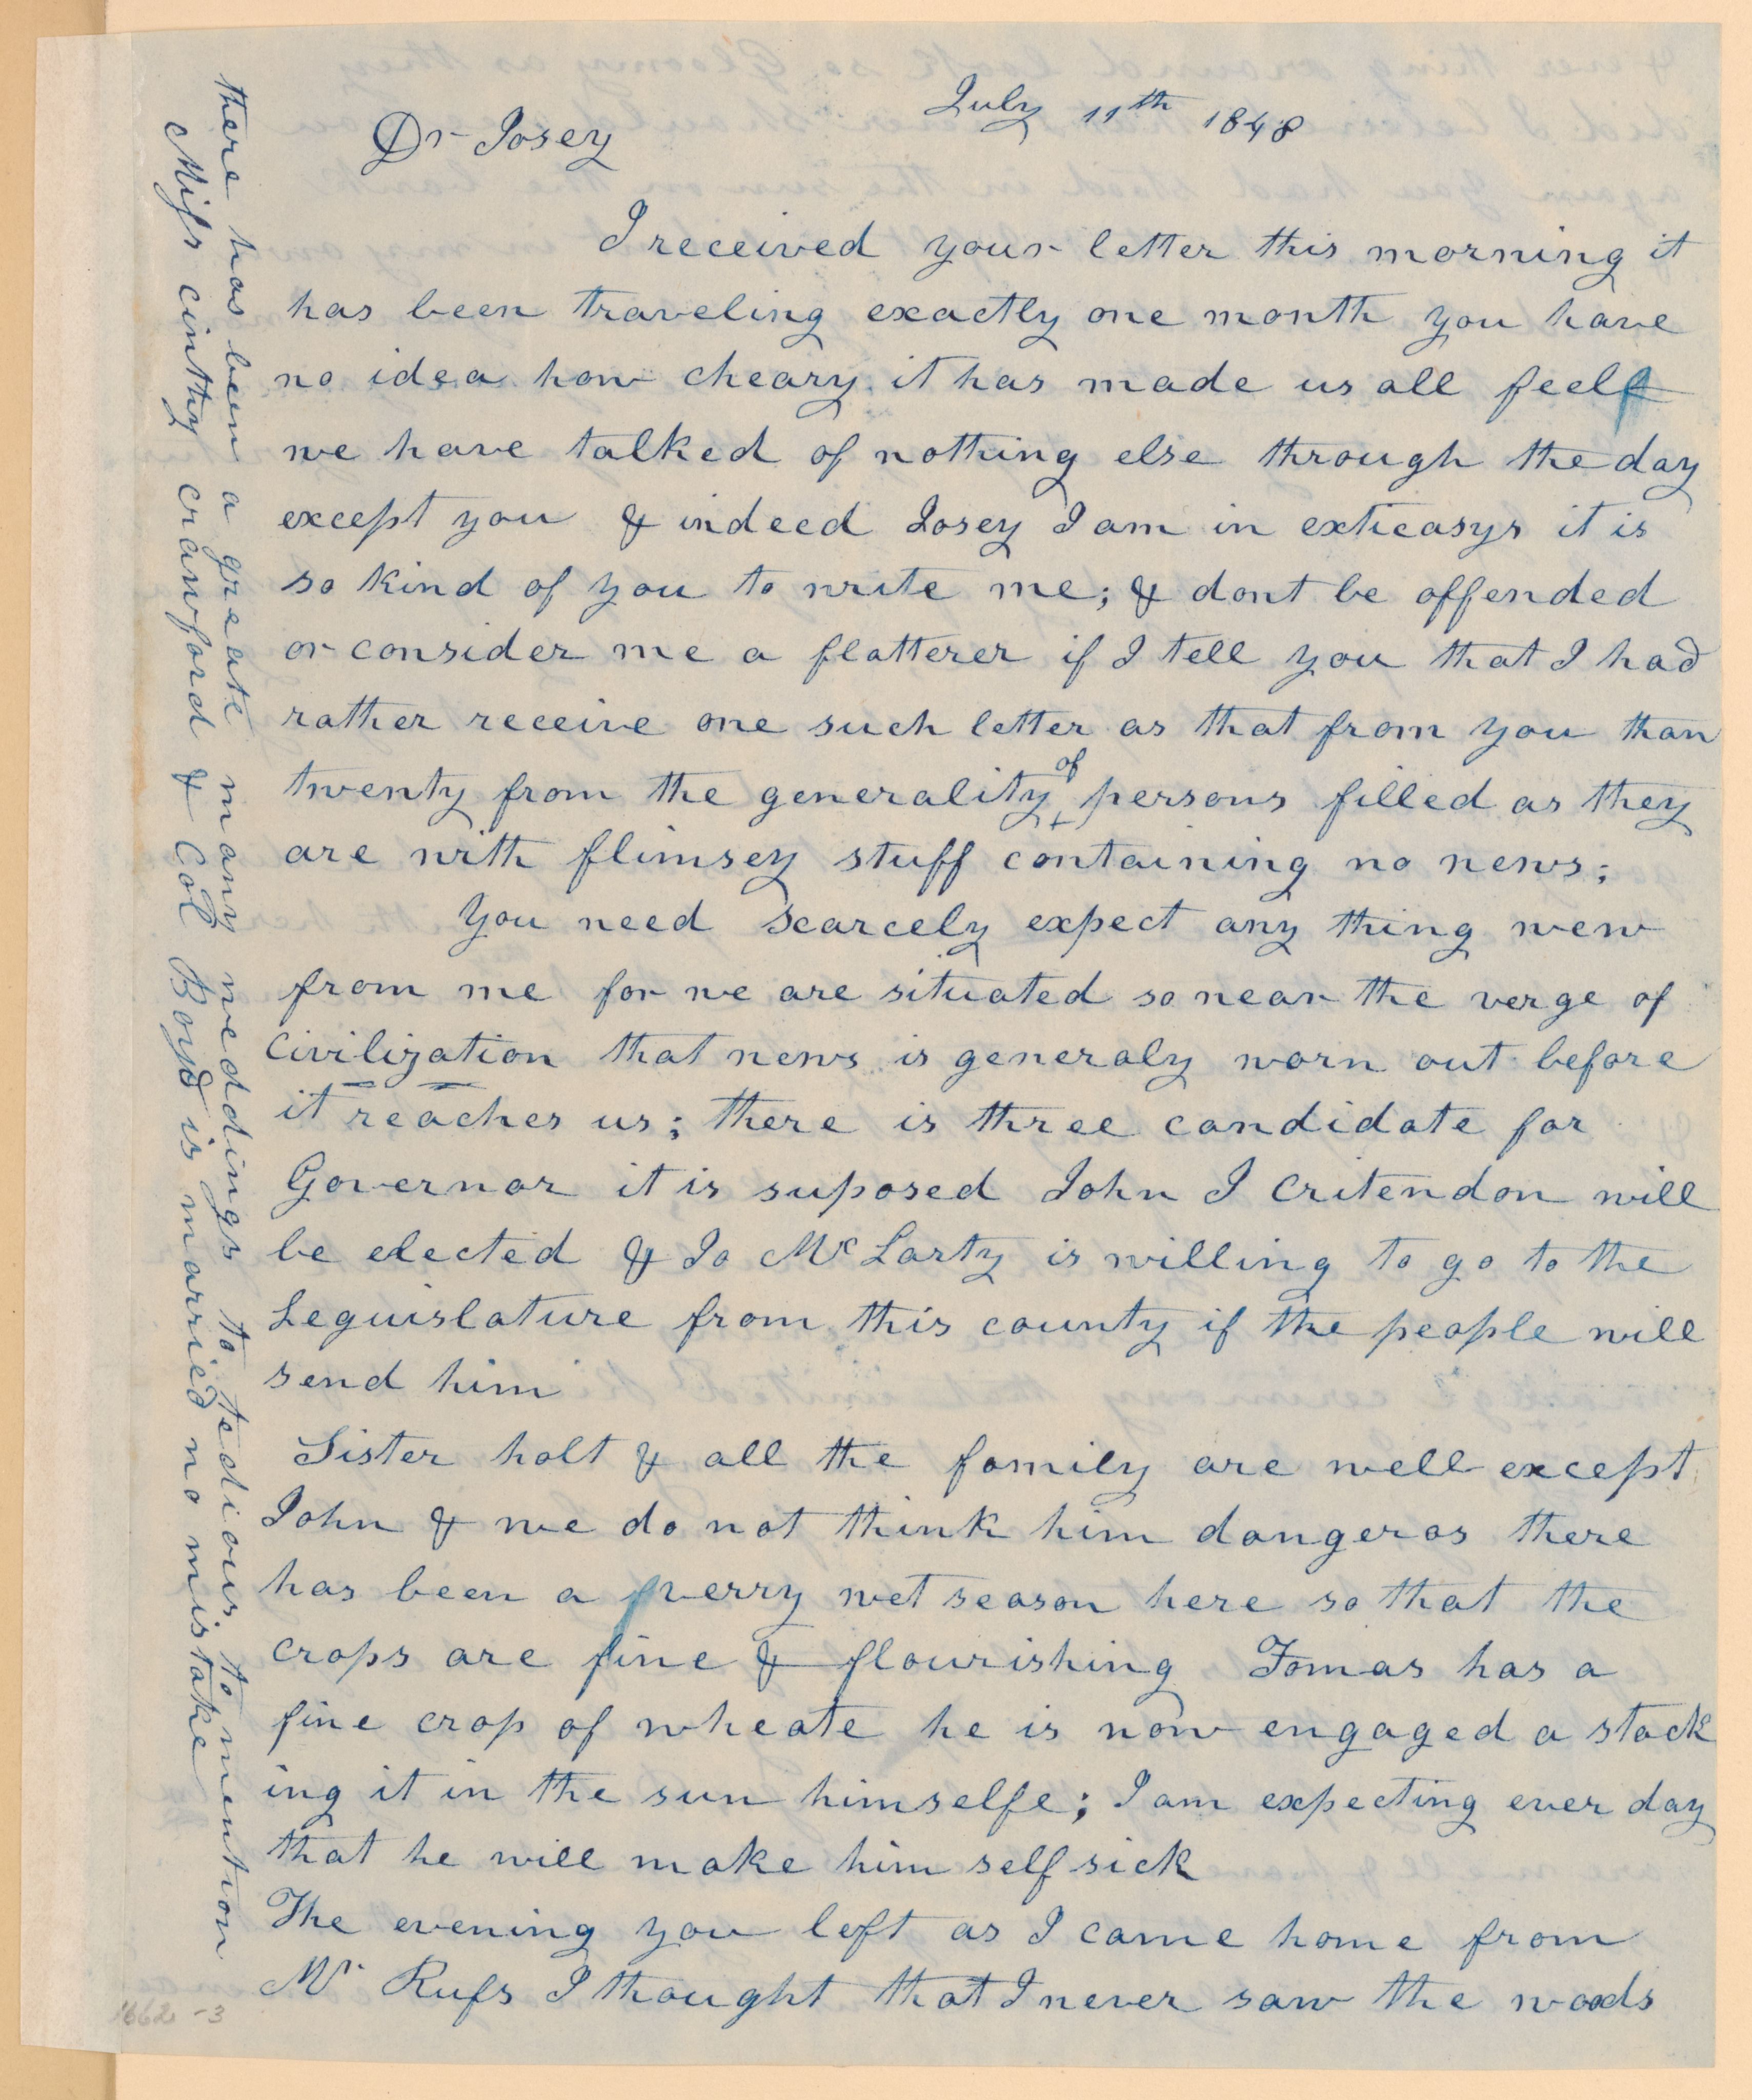 July 11th 1848
Dr Josey
I received your letter this morning it
has been traveling exactly one month you have
no idea how cheary it has made us all feel
we have talked of nothing else through the day
except you & indeed Josey I am in exticasys it is
so kind of you to write me; & dont be offended
or consider me a flatterer if I tell you that I had
rather receive one such letter as that from you than
twenty from the generality of persons filled as they
are with flimsey stuff containing no news;
You need scarcely expect any thing new
from me for we are situated so near the verge of
civilization that news is generaly worn out before
it reaches us; there is three candidate for
Governor it is suposed John J Critendon will
be elected & Jo McLarty is willing to go to the
Leguislature from this county if the people will
send him
Sister holt & all the family are well except
John & we do not think him dangeros there
has been a verry wet season here so that the
crops are fine & flourishing Tomas has a
fine crop of wheate he is now engaged a stack
ing it in the sun himselfe; I am expecting ever day
that he will make him self sick
The evening you left as I came home from
Mr Rufs I thought that I never saw the woods
there has been a greate many weddings to tedious to mention
Miss cinthy crawford & Col Boyd is married no mistake
1662-3